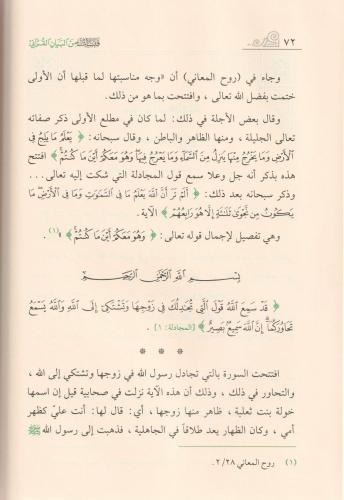 ٧٢
قبسات من البيان القرآني
وجاء في (روح المعاني) أن «وجه مناسبتها لما قبلها أن الأولى
ختمت بفضل الله تعالى ، وافتتحت بما هو من ذلك.
وقال بعض الأجلة في ذلك: لما كان في مطلع الأولى ذكر صفاته
تعالى الجليلة ، ومنها الظاهر والباطن ، وقال سبحانه: ﴿ يَعْلَمُ مَا يَلِجُ فِي
ٱلْأَرْضِ وَمَا يَخْرُجُ مِنْهَا وَمَا يَنزِلُ مِنَ ٱلسَّمَآءِ وَمَا يَعْرُجُ فِيهَا وَهُوَ مَعَكُمْ أَيْنَ مَا كُنتُمْ ﴾ افتتح
هذه بذكر أنه جل وعلا سمع قول المجادلة التي شكت إليه تعالى...
وذكر سبحانه بعد ذلك: ﴿ أَلَمْ تَرَ أَنَّ ٱللَّهَ يَعْلَمُ مَا فِي ٱلسَّمَٰوَٰتِ وَمَا فِي ٱلْأَرْضِ مَا
يَكُونُ مِن نَّجْوَىٰ ثَلَٰثَةٍ إِلَّا هُوَ رَابِعُهُمْ ﴾ الآية.
وهي تفصيل لإجمال قوله تعالى: ﴿ وَهُوَ مَعَكُمْ أَيْنَ مَا كُنتُمْ ﴾ »(١).
بِسْمِ ٱللَّهِ ٱلرَّحْمَٰنِ ٱلرَّحِيمِ
﴿ قَدْ سَمِعَ ٱللَّهُ قَوْلَ ٱلَّتِي تُجَٰدِلُكَ فِي زَوْجِهَا وَتَشْتَكِيٓ إِلَى ٱللَّهِ وَٱللَّهُ يَسْمَعُ
تَحَاوُرَكُمَآ إِنَّ ٱللَّهَ سَمِيعٌۢ بَصِيرٌ ﴾ [المجادلة: ١] .
* * *
افتتحت السورة بالتي تجادل رسول الله في زوجها وتشتكي إلى الله ،
والتحاور في ذلك ، وذلك أن هذه الآية نزلت في صحابية قيل إن اسمها
خولة بنت ثعلبة ، ظاهر منها زوجها ، أي: قال لها: أنت عليّ كظهر
أمي ، وكان الظهار يعد طلاقاً في الجاهلية ، فذهبت إلى رسول الله ﷺ
(١) روح المعاني ٢٨/ ٢.